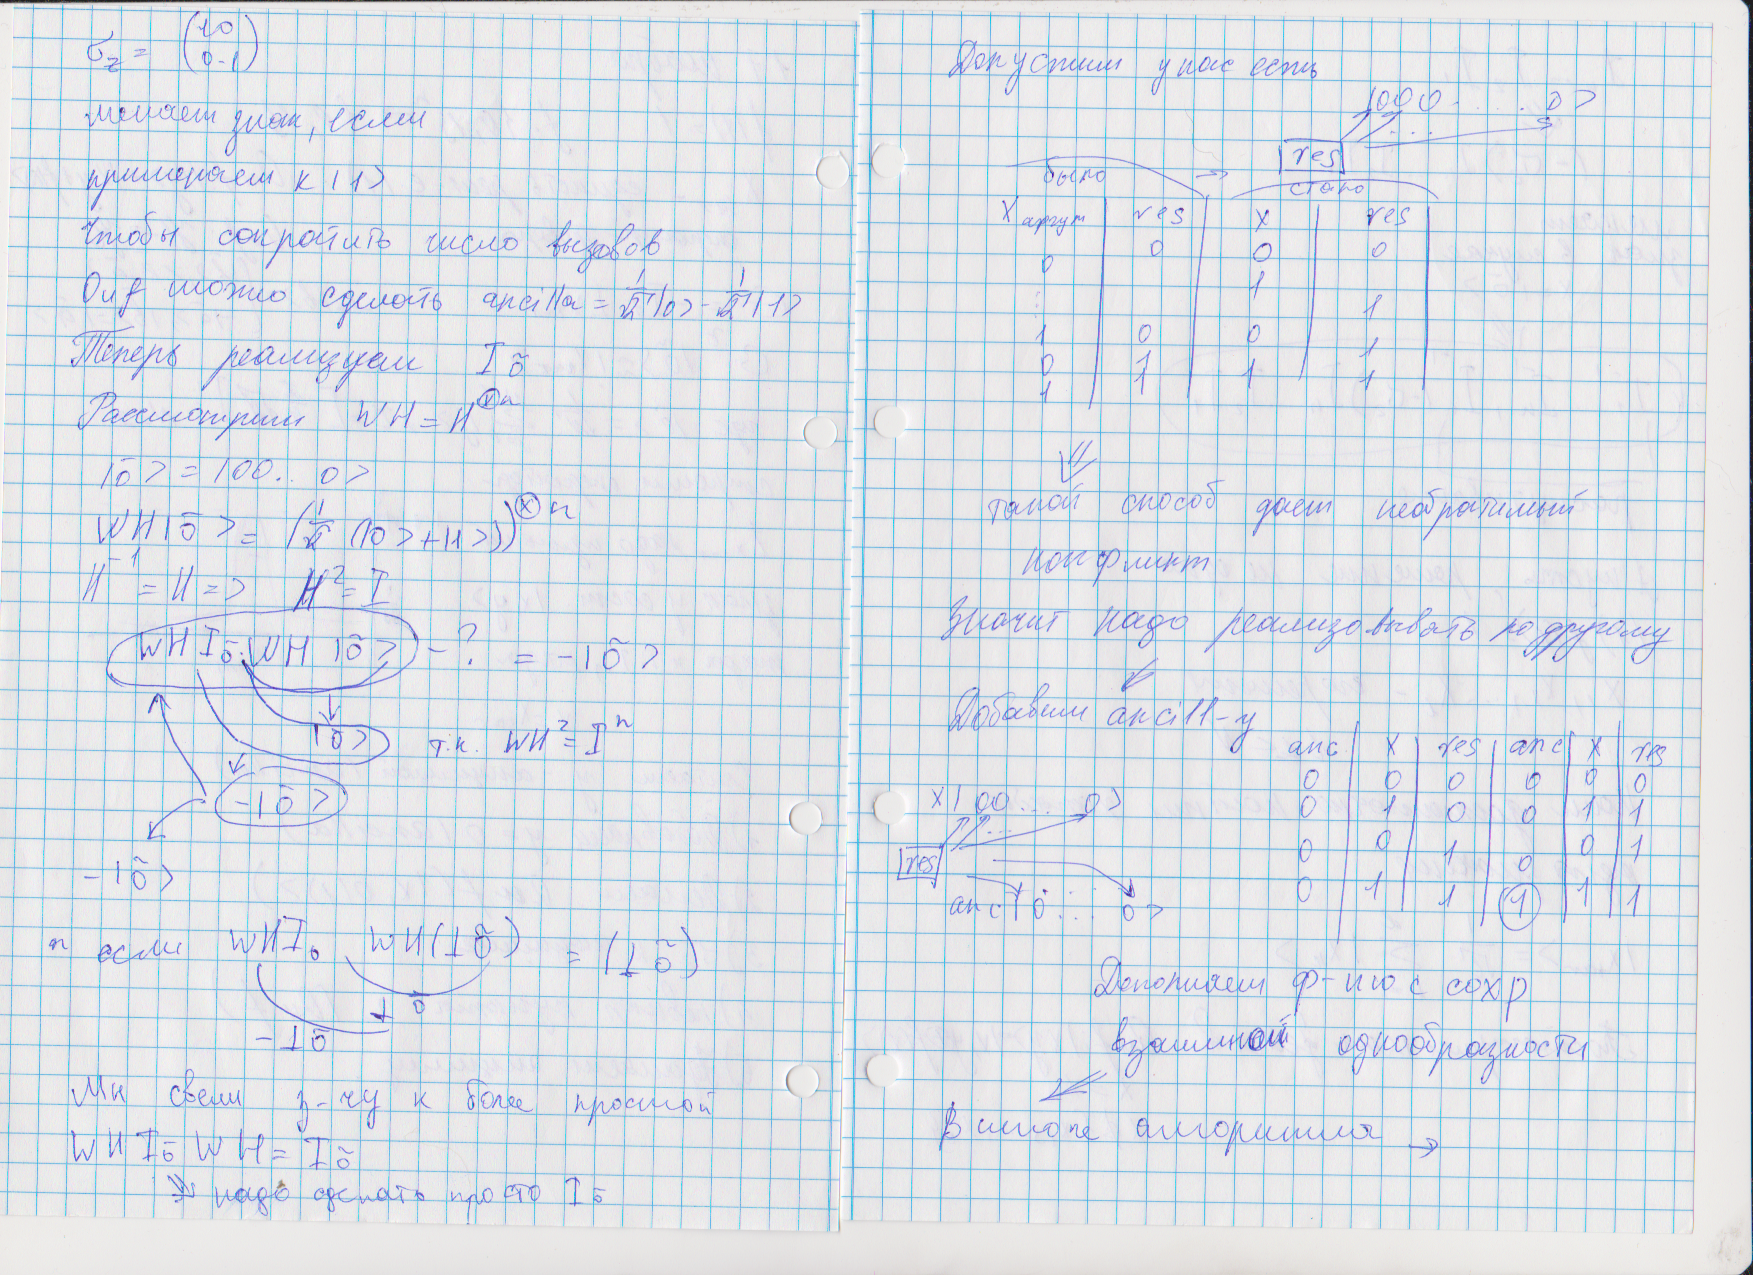 σz = (1 0
0 -1)
меняем знак, если
применяем к |1>
Чтобы сократить число вызовов
Quf можно сделать ancilla = 1/√2|0> - 1/√2|1>
Теперь реализуем I õ
Рассмотрим WH = H^⊗n
|õ> = |00...0>
WH|õ> = (1/√2 (|0>+|1>))^⊗n
H^-1 = H => H^2 = I
WH I õ WH |õ> - ? = -|õ>
|õ> т.к. WH^2 = I^n
-|õ>
-|õ>
если WH I₀ WH(⊥õ) = (⊥õ)
⊥õ
-⊥õ
Мы свели з-чу к более простой
WH I õ WH = I õ
надо сделать просто I õ
Допустим у нас есть
|000.....0>
res
было → стало
X аргум | res | X | res
0 0 0 0
1
⋮ 1
1 0 0
0 1 1
1 1 1 1
такой способ дает необратимый
конфликт
Значит надо реализовывать по другому
Добавим ancill-у
anc | X | res | anc | X | res
0 0 0 0 0 0
0 1 0 0 1 1
0 0 1 0 0 1
0 1 1 1 1 1
X|00...0>
res
anc|0...0>
Дополняем ф-ию с сохр
взаимной однообразности
В итоге алгоритма →